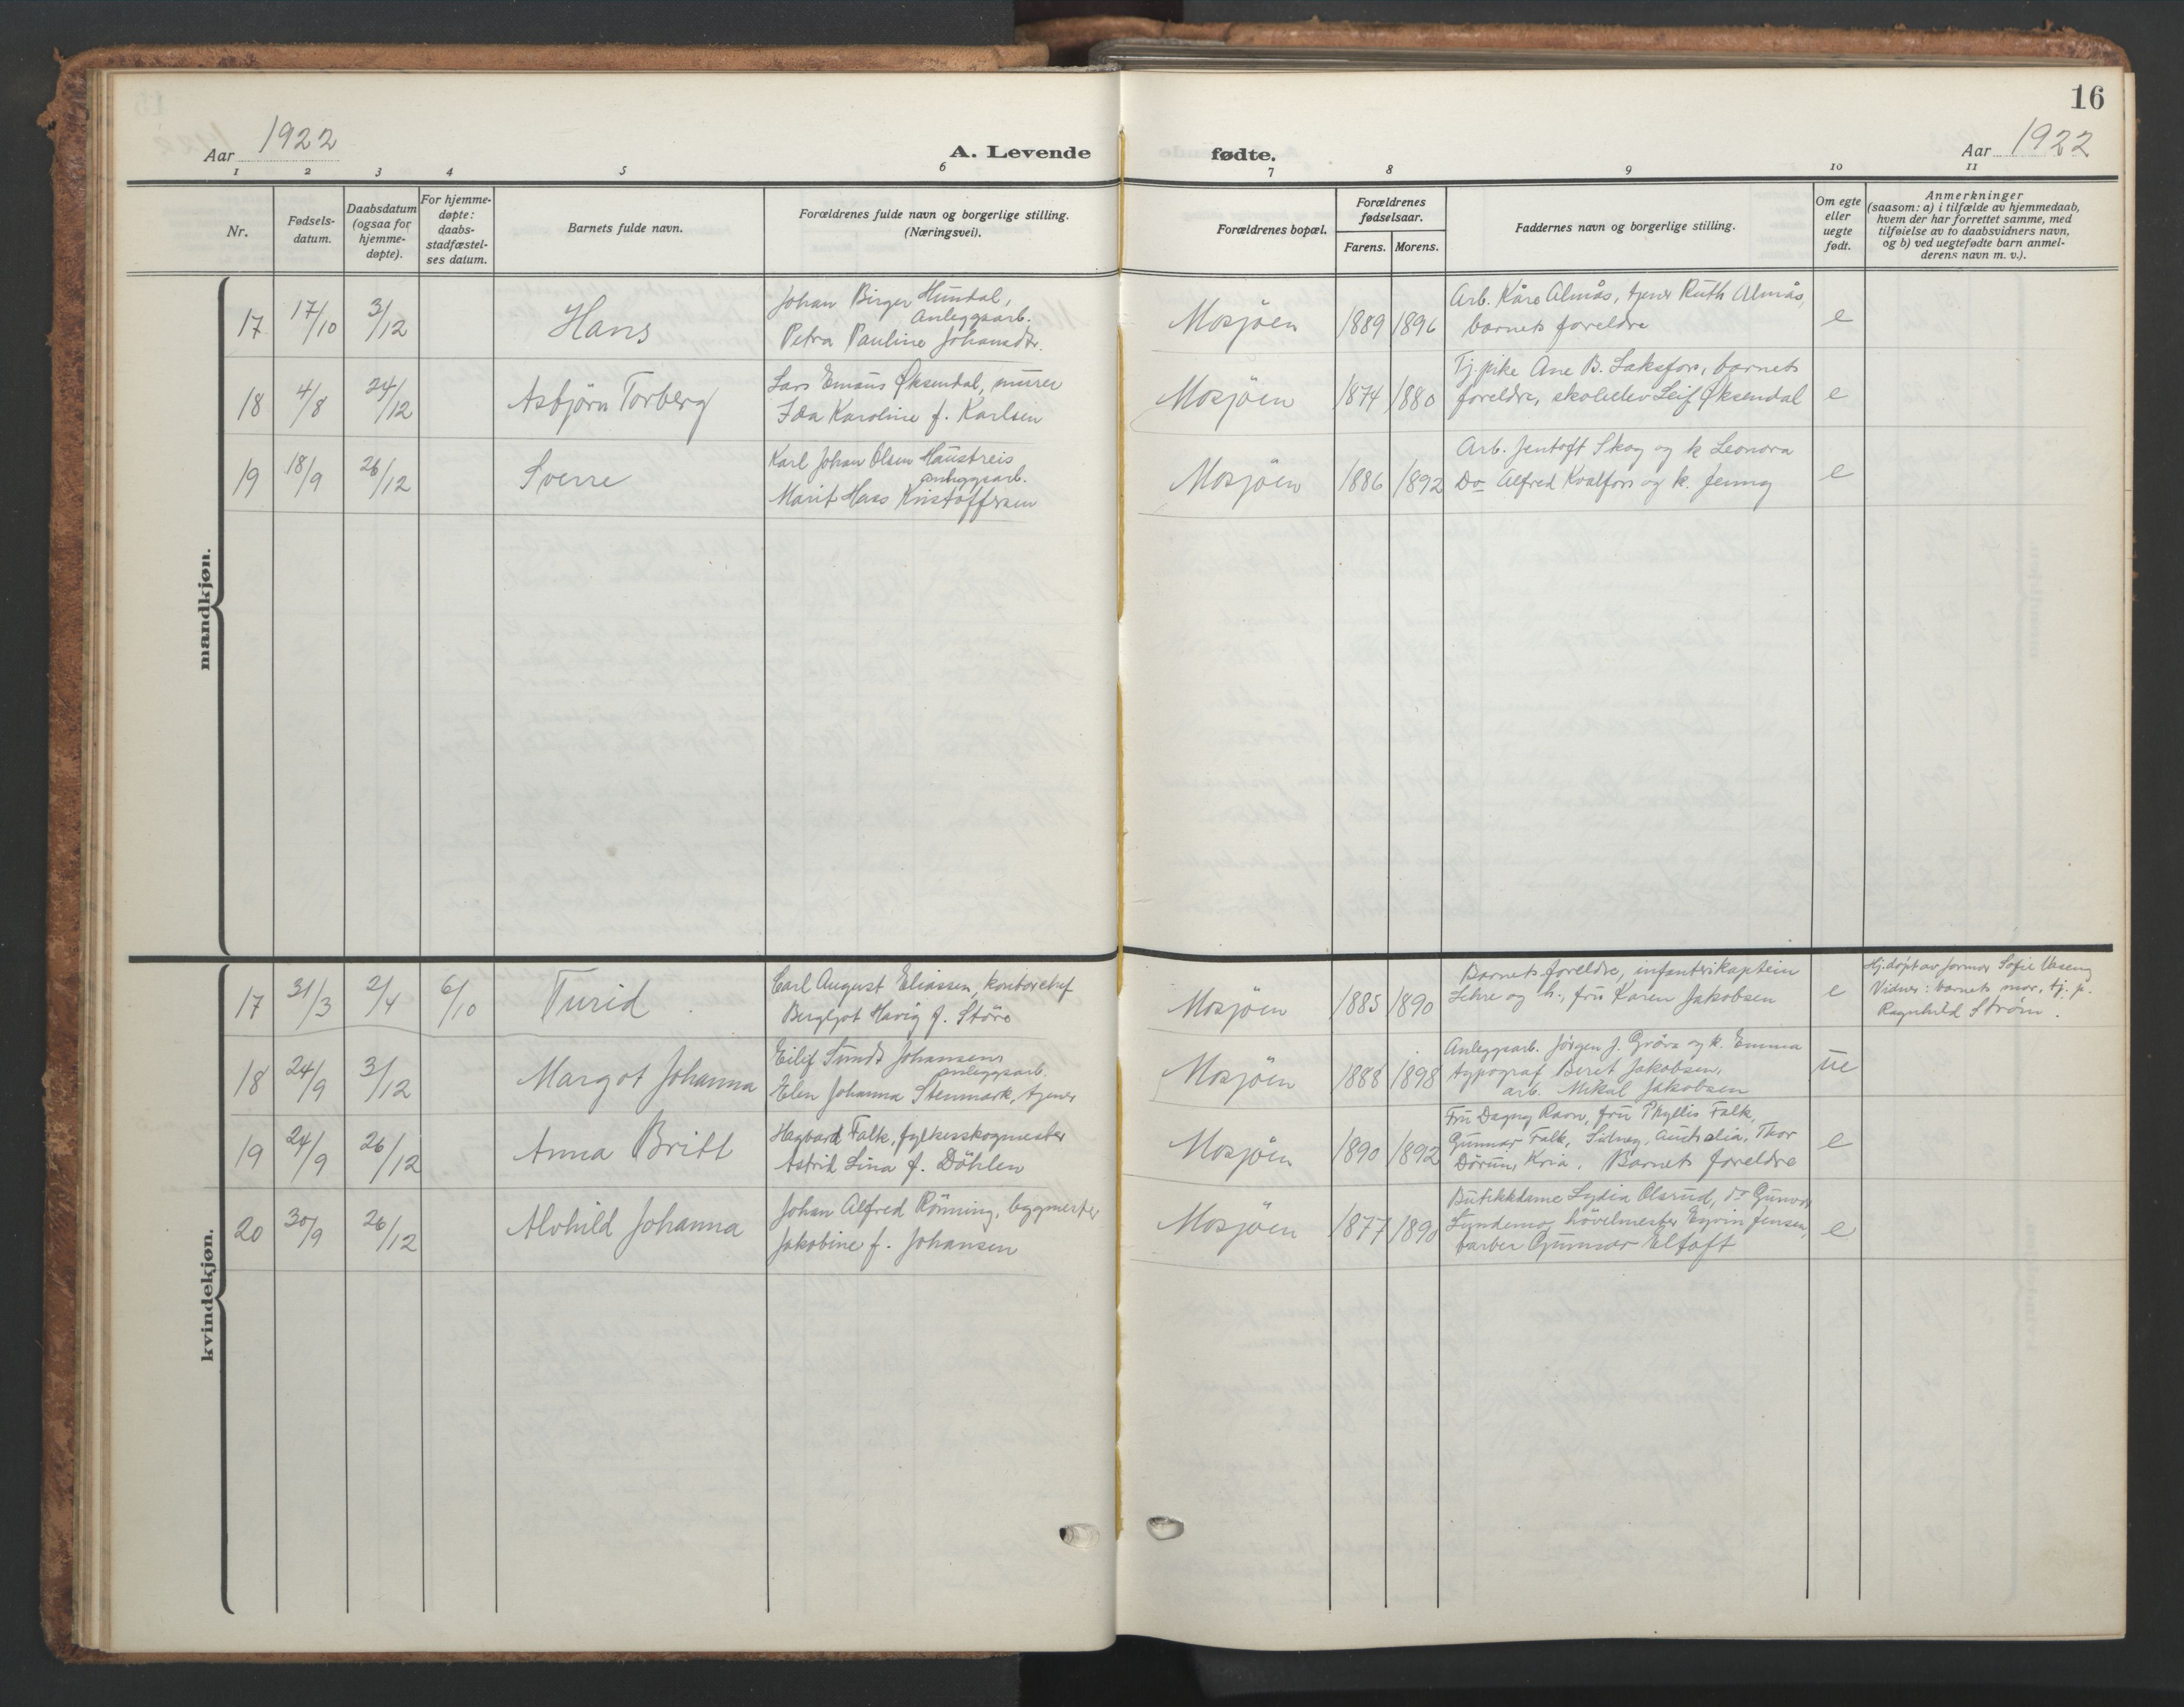 16
Aar 1922
A. Levende
fødte.
Aar 1922
1 2 3 4 5 6 7 8 9 10 11
Nr.
Fødsels-
datum.
Daabsdatum
(ogsaa for
hjemme-
døpte).
For hjemme-
døpte:
daabs-
stadfæstel-
ses datum.
Barnets fulde navn.
Forældrenes fulde navn og borgerlige stilling.
(Næringsvei).
Forældrenes bopæl.
Forældrenes
fødselsaar.
Farens. Morens.
Faddernes navn og borgerlige stilling.
Om egte
eller
uegte
født.
Anmerkninger
(saasom: a) i tilfælde av hjemmedaab,
hvem der har forrettet samme, med
tilføielse av to daabsvidners navn,
og b) ved uegtefødte barn anmel-
derens navn m. v.).
mandkjøn.
17 17/10 3/12 Hans
Johan Birger Hundal,
Anleggsarb.
Petra Pauline Johansdtr.
Mosjöen 1889 1896
Arb. Kåre Almås, tjener Ruth Almås,
barnets foreldre
e
18 4/8 24/12 Asbjörn Torberg
Lars Emaus Øksendal, murer
Ida Karoline f. Karlsen
Mosjöen 1874 1880
Tj.pike Ane B. Laksfors, barnets
foreldre, skoleelev Leif Øksendal
e
19 18/9 26/12 Sverre
Karl Johan Olsen Haustreis
anleggsarb.
Marit Hass Kristoffersen
Mosjöen 1886 1892
Arb. Jentoft Skog og k Leonora
Do Alfred Kvalfors og k. Jenny
e
kvindekjøn.
17 31/3 2/4 6/10 Turid
Carl August Eliassen, kontorchef
Bergljot Havig f. Störe
Mosjöen 1885 1890
Barnets foreldre, infanterikaptein
Lehre og h., fru Karen Jakobsen
e
Hj.døpt av jormor Sofie Vaseng
Vidner: barnets mor, tj. p.
Ragnhild Ström.
18 24/9 3/12 Margot Johanna
Eilif Sund Johansen,
anleggsarb.
Elen Johanna Stenmark, tjener
Mosjöen 1888 1898
Anleggsarb. Jörgen J. Gröra og k. Emma
typograf Beret Jakobsen,
arb. Mikal Jakobsen
ue
19 24/9 26/12 Anna Britt
Hagbard Falk, fylkesskogmester
Astrid Lina f. Döhlen
Mosjöen 1890 1892
Fru Dagny Ravn, fru Phyllis Falk,
Gunnar Falk, Sidney, Australia, Thor
Dörum, Kria. Barnets foreldre
e
20 30/9 26/12 Alvhild Johanna
Johan Alfred Rönning, bygmester
Jakobine f. Johansen
Mosjöen 1877 1890
Butikkdame Lydia Olsrud, do Gunvor
Lyndemo, hövelmester Eyvin Jensen,
barber Gunnar Eltoft
e